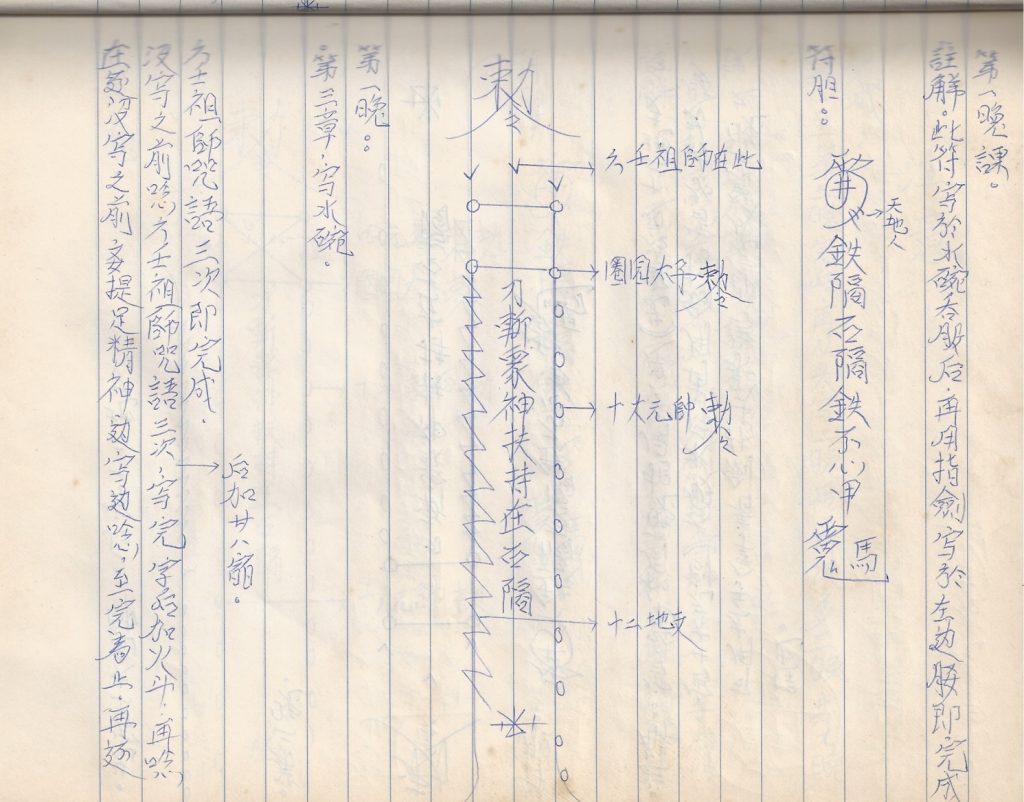 第一晚課。
註解。此符写於水碗吞服后,再用指劍写於左边腰即完成
符胆:。
天地人
鉄隔石隔鉄不心甲
馬
六壬祖師在此
敕令
圈圓太子敕令
刀斬眾神扶持在石隔
十大元帥敕令
十二地支
第一晚:。
第三章,写水碗。
后加廿八宿。
六壬祖師咒語三次即完成。
没写之前唸六壬祖師咒語三次,写完字后加火斗,再唸
在还没写之前,要提足精神边写边唸,至完着止,再